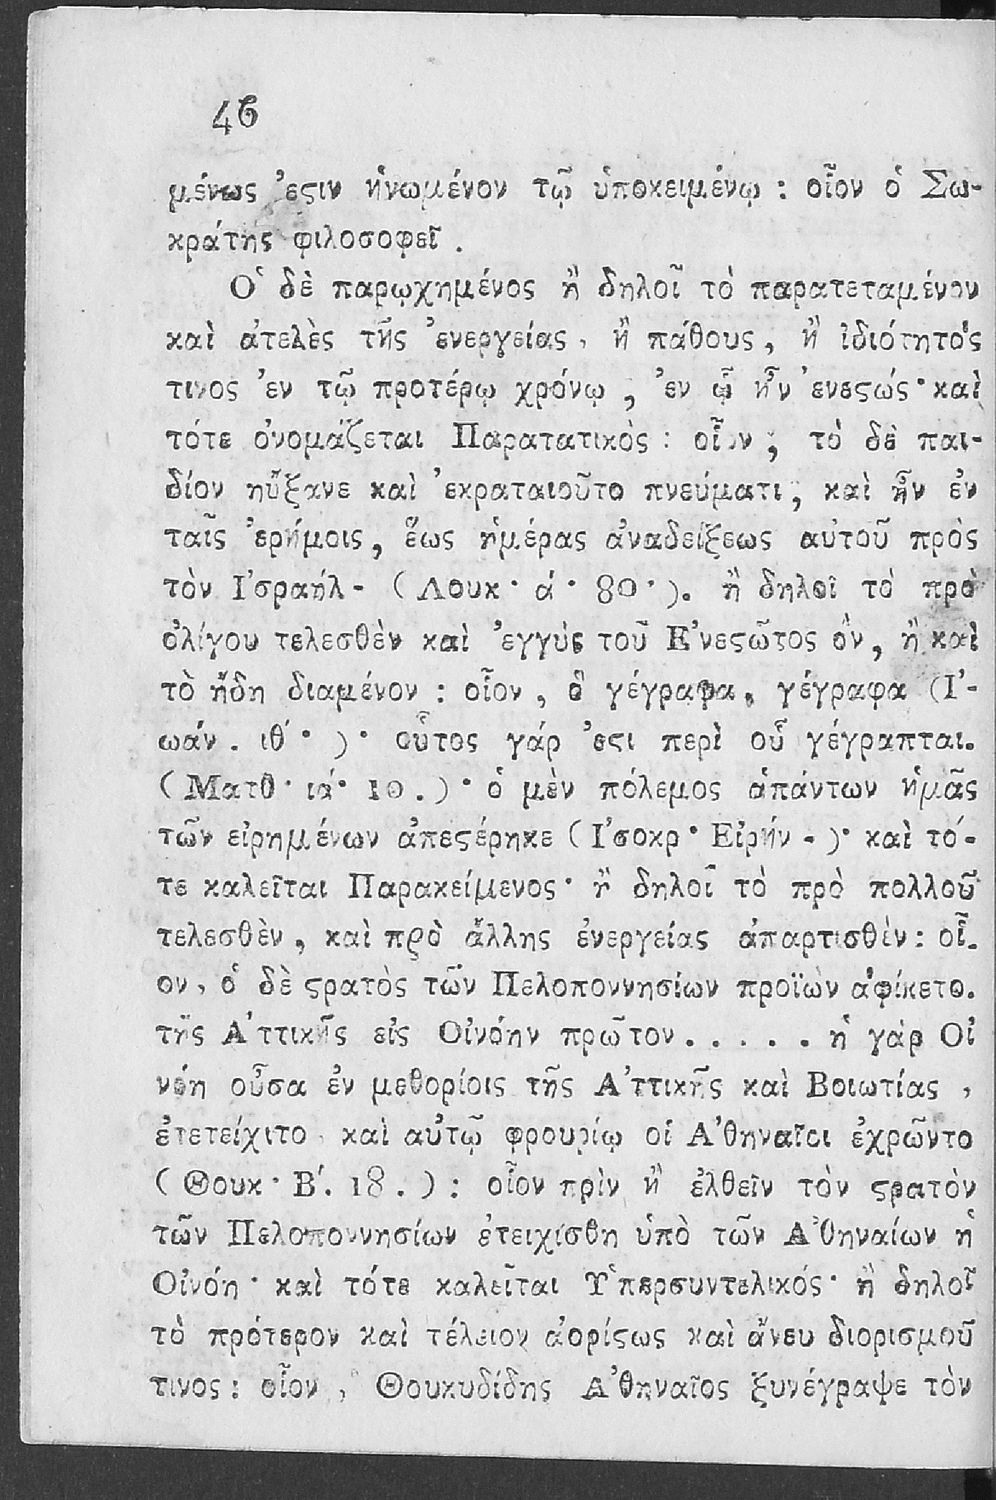 46
μένως ἐϛιν ἡνωμένον τῷ ὑποκειμένῳ : οἷον ὁ Σω-
κράτης φιλοσοφεῖ .
Ὁ δὲ παρῳχημένος ἢ δηλοῖ τὸ παρατεταμένον
καὶ ἀτελὲς τῆς ἐνεργείας , ἢ πάθους , ἢ ἰδιότητός
τινος ἐν τῷ προτέρῳ χρόνῳ , ἐν ᾧ ἦν ἐνεϛώς · καὶ
τότε ὀνομάζεται Παρατατικὸς : οἷον , τὸ δὲ παι-
δίον ηὔξανε καὶ ἐκραταιοῦτο πνεύματι , καὶ ἦν ἐν
ταῖς ἐρήμοις , ἕως ἡμέρας ἀναδείξεως αὐτοῦ πρὸς
τὸν Ἰσραήλ - ( Λουκ · ά · 80 · ). ἢ δηλοῖ τὸ πρὸ
ὀλίγου τελεσθὲν καὶ ἐγγὺς τοῦ Ἐνεϛῶτος ὂν , ἢ καὶ
τὸ ἤδη διαμένον : οἷον , ὃ γέγραφα , γέγραφα (Ἰ-
ωάν . ιθ΄ · ) · οὗτος γάρ ἐϛι περὶ οὗ γέγραπται.
( Ματθ · ιά · 10 . ) · ὁ μὲν πόλεμος ἁπάντων ἡμᾶς
τῶν εἰρημένων ἀπεϛέρηκε ( Ἰσοκρ · Εἰρήν - ) · καὶ τό-
τε καλεῖται Παρακείμενος · ἢ δηλοῖ τὸ πρὸ πολλοῦ
τελεσθὲν , καὶ πρὸ ἄλλης ἐνεργείας ἀπαρτισθὲν : οἷ-
ον , ὁ δὲ ϛρατὸς τῶν Πελοποννησίων προϊὼν ἀφίκετο.
τῆς Ἀττικῆς εἰς Οἰνόην πρῶτον . . . . . ἡ γὰρ Οἰ
νόη οὖσα ἐν μεθορίοις τῆς Ἀττικῆς καὶ Βοιωτίας ,
ἐτετείχιτο , καὶ αὐτῷ φρουρίῳ οἱ Ἀθηναῖοι ἐχρῶντο
( Θουκ · Β΄. 18 . ) : οἷον πρὶν ἢ ἐλθεῖν τὸν ϛρατὸν
τῶν Πελοποννησίων ἐτειχίσθη ὑπὸ τῶν Ἀθηναίων ἡ
Οἰνόη · καὶ τότε καλεῖται Ὑπερσυντελικός · ἢ δηλοῖ
τὸ πρότερον καὶ τέλειον ἀορίϛως καὶ ἄνευ διορισμοῦ
τινος : οἷον , Θουκυδίδης Ἀθηναῖος ξυνέγραψε τὸν